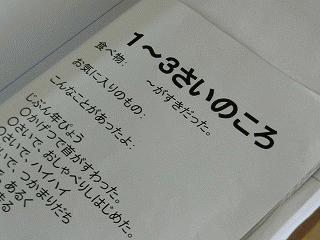 1～3さいのころ
食べ物：　～がすきだった。
お気に入りのもの：
こんなことがあったよ：
じぶん年ぴょう
〇かげつで首がすわった。
〇さいで、おしゃべりしはじめた。
〇さいで、ハイハイ
いで、つかまりだち
、あるく
まる